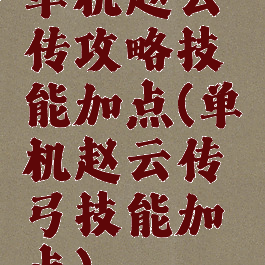 单机赵云
传攻略技
能加点(单
机赵云传
弓技能加
点)